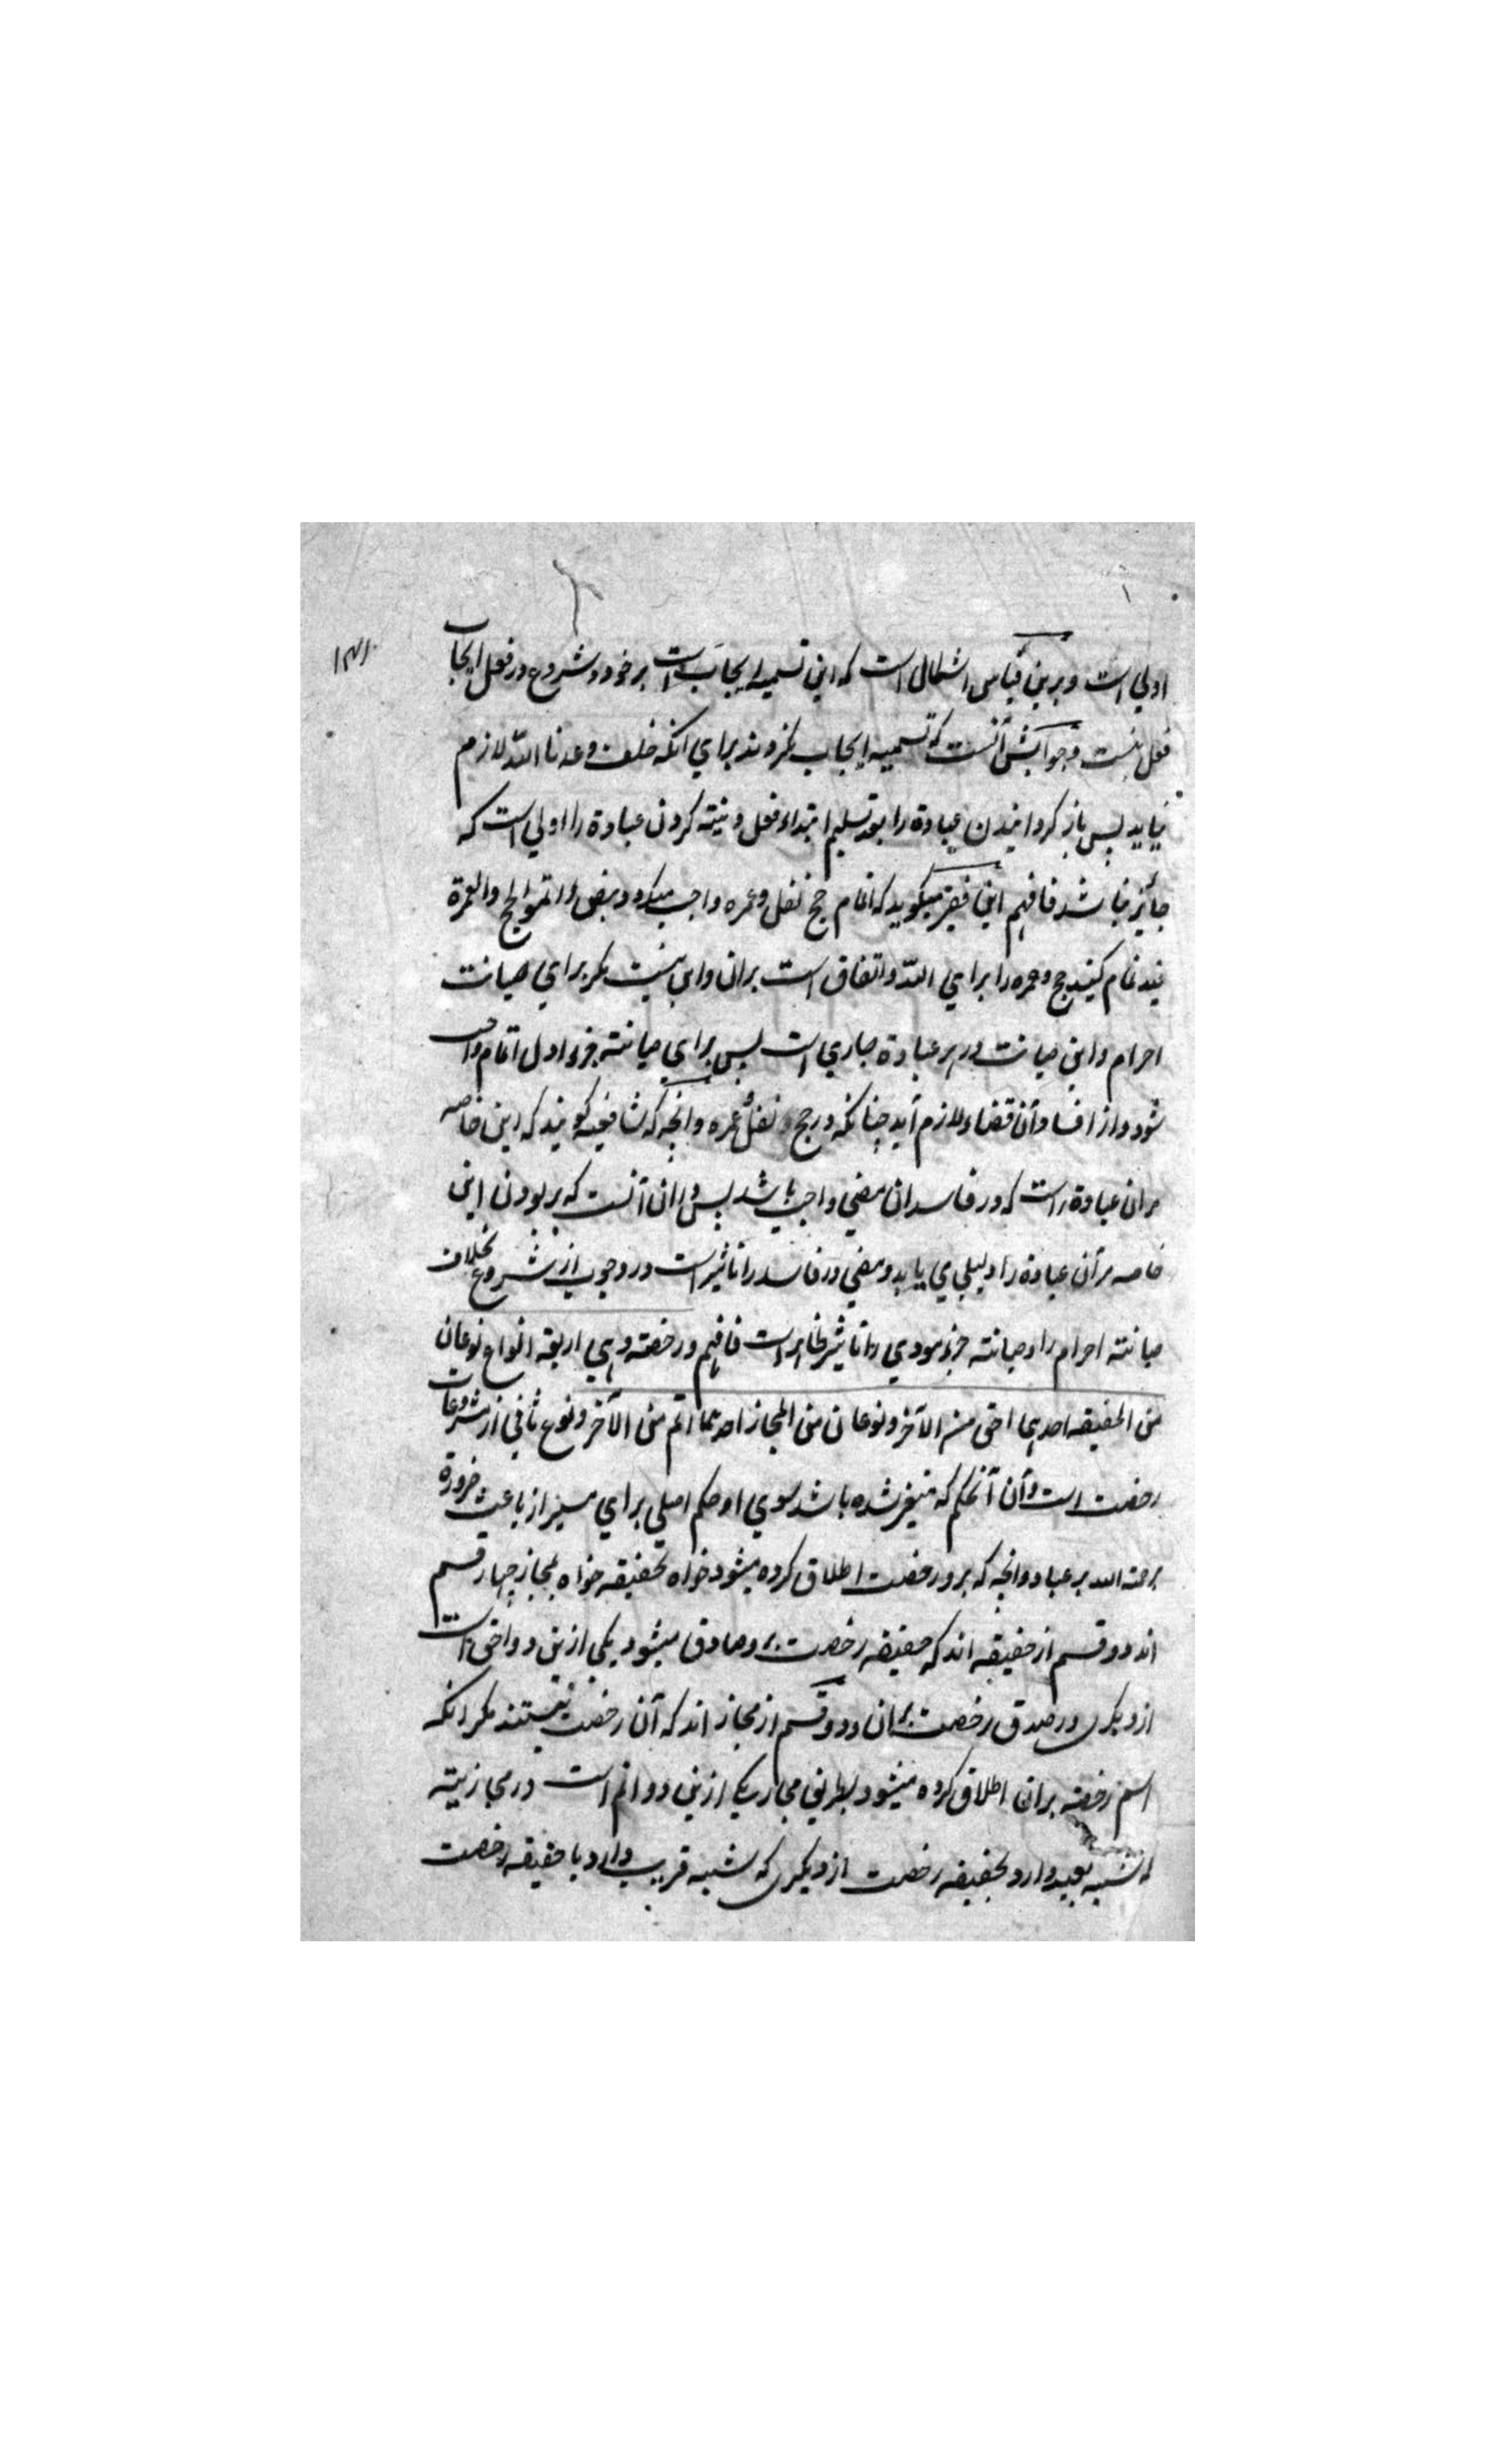 ۱۳۱
اولي است و برين قياس اشكالی است كه اين تسميه ايجاب است بر خود و شروع در فعل ايجاب
فعل نيست و جوابش آنست كه تسميه ايجاب نكردند براي انكه خلف وعدنا الله لازم
نيايد پس باز كردانيدن عبادة را بعد تسليم ابتداء فعل و نيته كردن عبادة را اولي است كه
جائز نباشد فافهم اين فقير ميكويد كه اتمام حج نفل و عمره واجب ميكردد بنص و اتموا الحج والعمرة
لله تمام كنيد حج و عمره را براي الله و اتفاق است بران و اين نيست مكر براي صيانت
احرام و اين صيانت در هر عبادة جاري است پس براي صيانته جزء اول اتمام واجب
شود و از افساد آن قضاء لازم آيد چنانكه در حج نفل و عمره و انچه كه شافعيه كويند كه اين خاصه
مر ان عبادة راست كه در فاسد ان مضي واجب باشد پس وران آنست كه بر بودن اين
خاصه مر آن عبادة را دليلي بايد و مضي در فاسد را تاثير است در وجوب از شروع بخلاف
صيانته احرام را و صيانته جزء مودي را تاثير ظاهر است فافهم و رخصته وهي اربعة انواع نوعان
من الحقيقه احدهما احق من الآخر و نوعان من المجاز احدهما اتم من الآخر و نوع ثاني از مشروعات
رخصت است و آن آنحكم كه متغير شده باشد سوي او حكم اصلي براي يسر از باعث ضرورة
رحمة الله بر عباد و انچه كه برو رخصت اطلاق كرده ميشود خواه بحقيقه خواه بمجاز چهار قسم
اند دو قسم از حقيقه اند كه حقيقه رخصت برو صادق ميشود يكي ازين دو احق است
از ديكری در صدق رخصت بران و دو قسم از مجاز اند كه آن رخصت نيستند مكر انكه
اسم رخصته بران اطلاق كرده ميشود بطريق مجاز يكی ازين دو اتم است در مجازيته
كه شبيه بعيد دارد بحقيقه رخصت از ديكری كه شبه قريب دارد با حقيقه رخصت